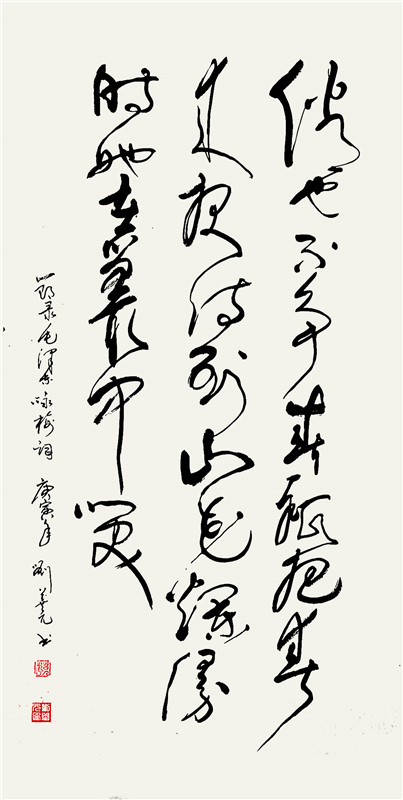 俏也不争春祇把春
来报待到山花爛漫
时她在叢中笑
节录毛泽东咏梅词 庚寅年 劉 书